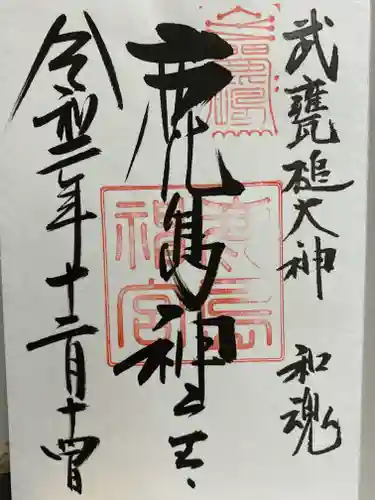 武甕槌大神 和魂
鹿島神宮
令和二年十二月十四日